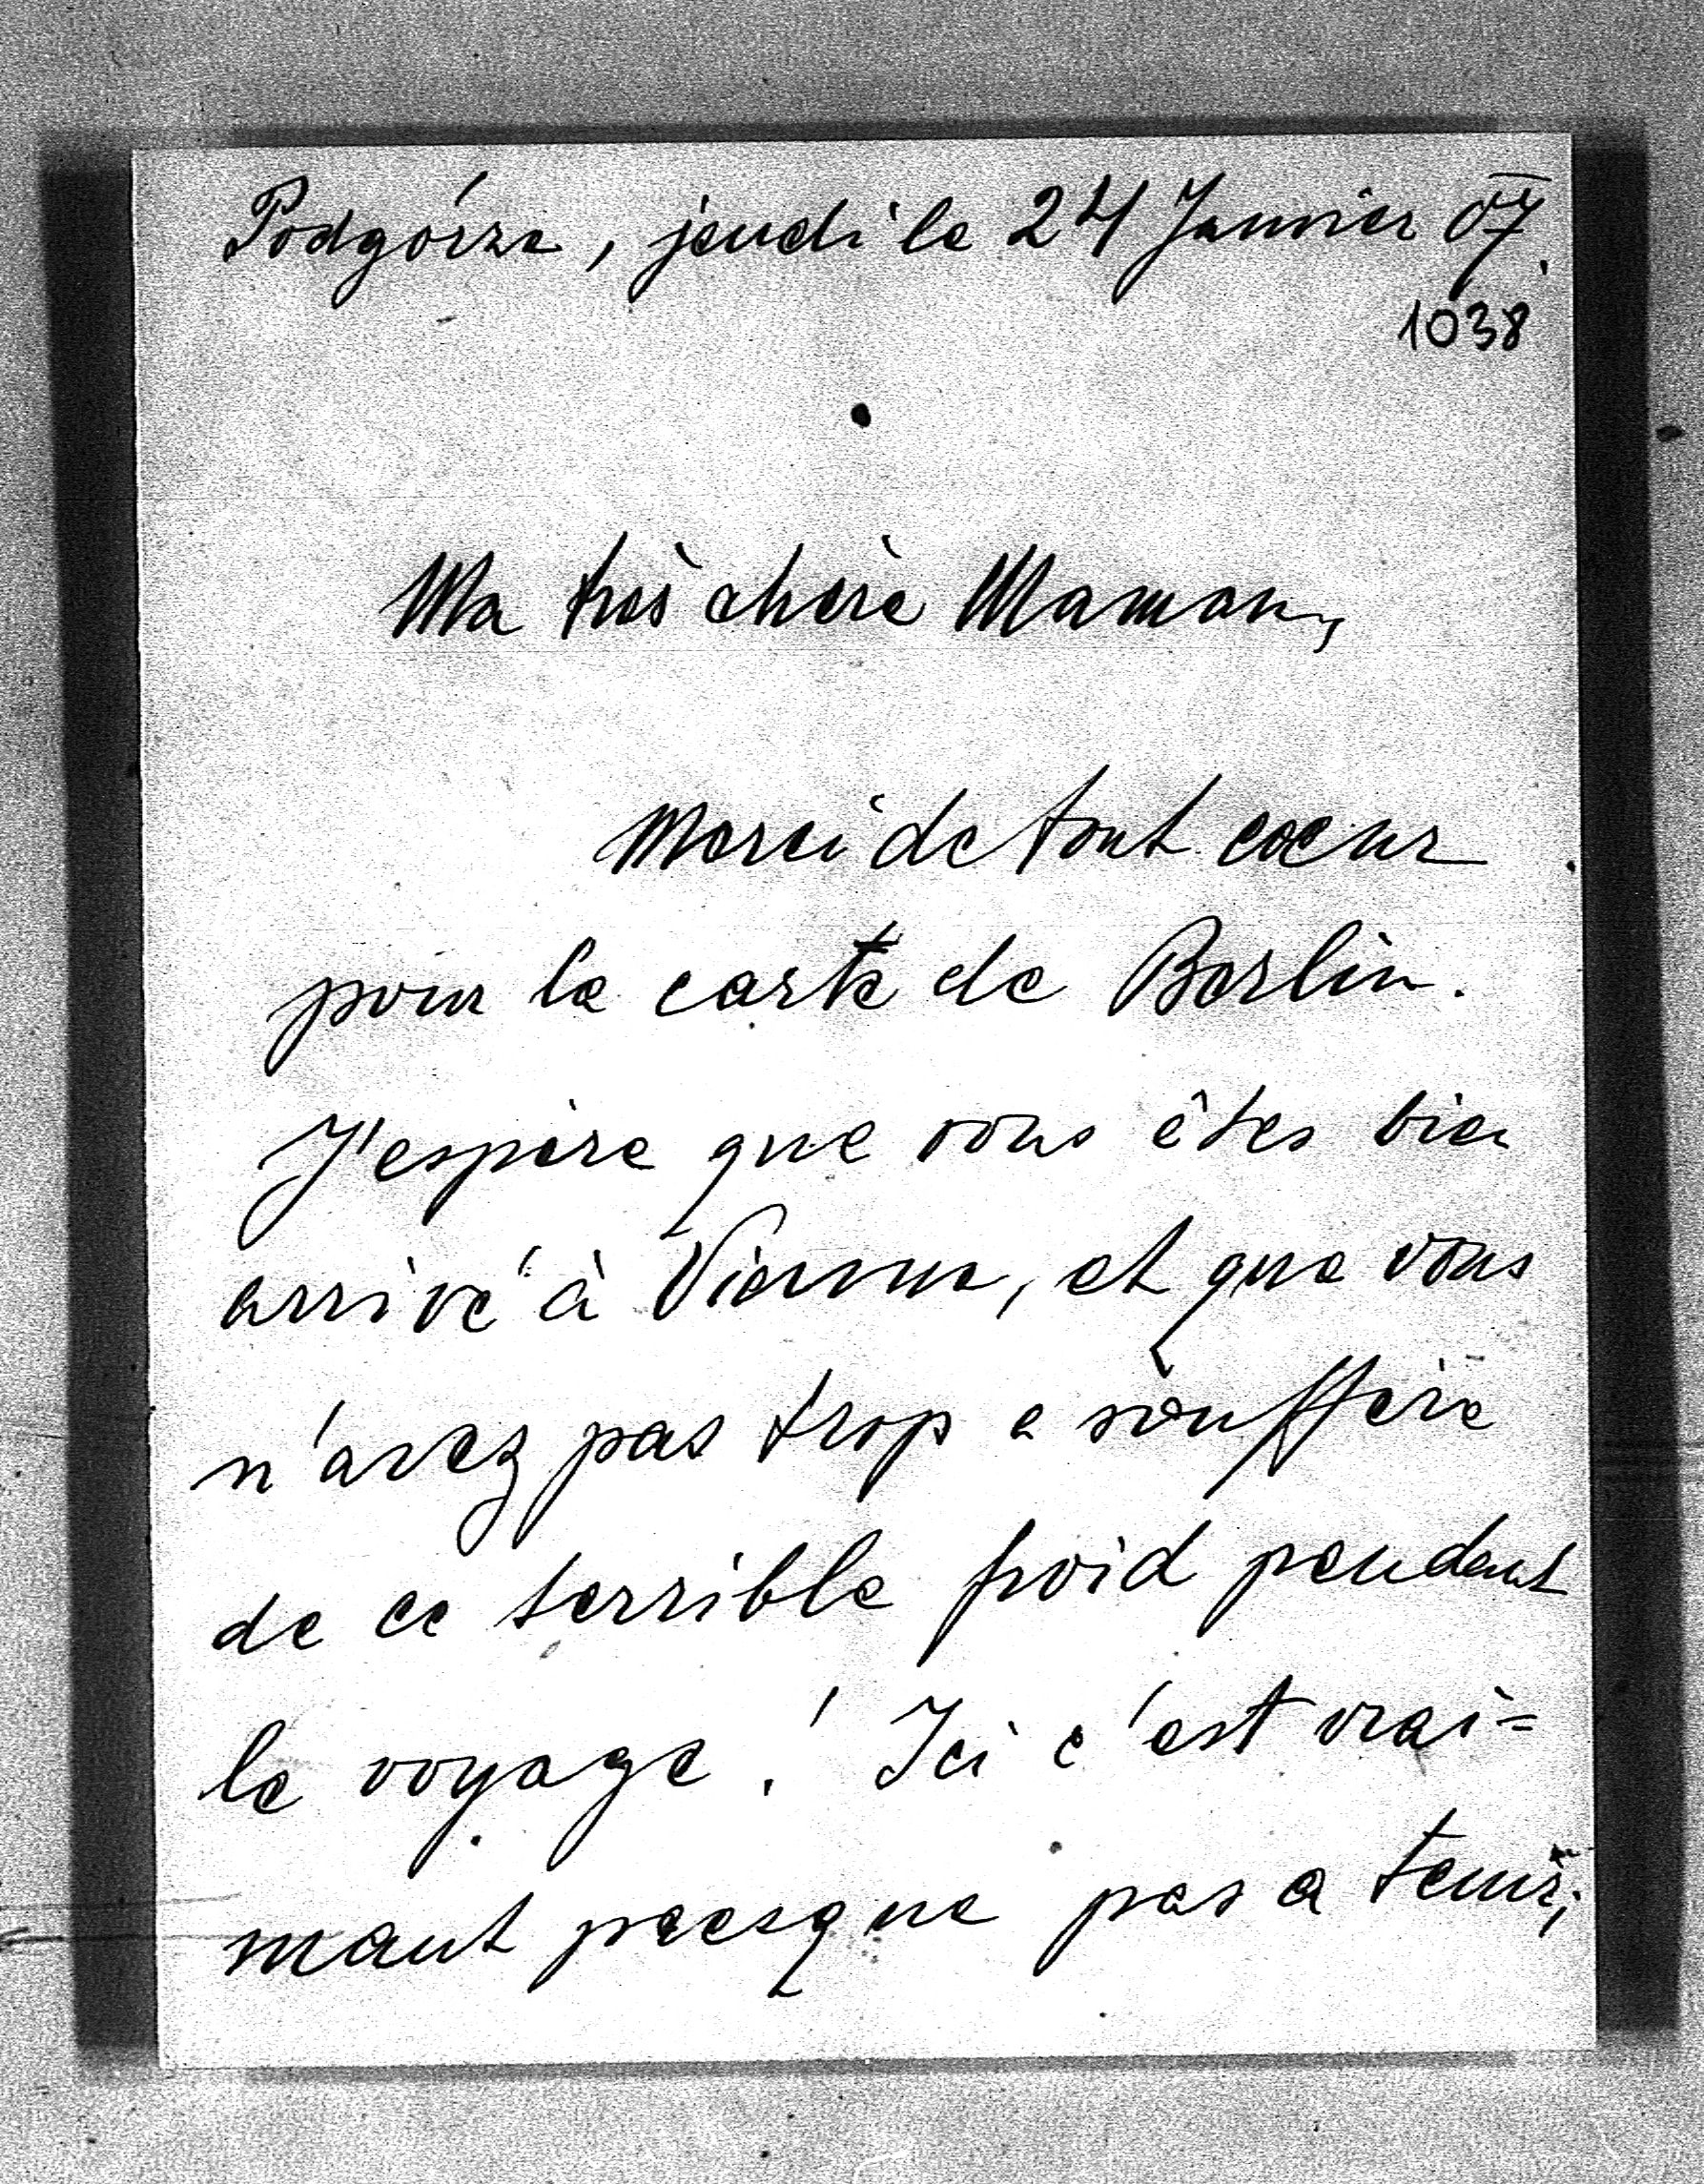 Podgórze, jeudi le 24 Janvier 07.
1038
Ma très chère Maman,
Merci de tout coeur
pour la carte de Berlin.
J'espère que vous êtes bien
arrivé à Vienne, et que vous
n'avez pas trop a souffère
de ce terrible froid pendant
le voyage! Ici c'est vrai=
mant presque pas a tenir,